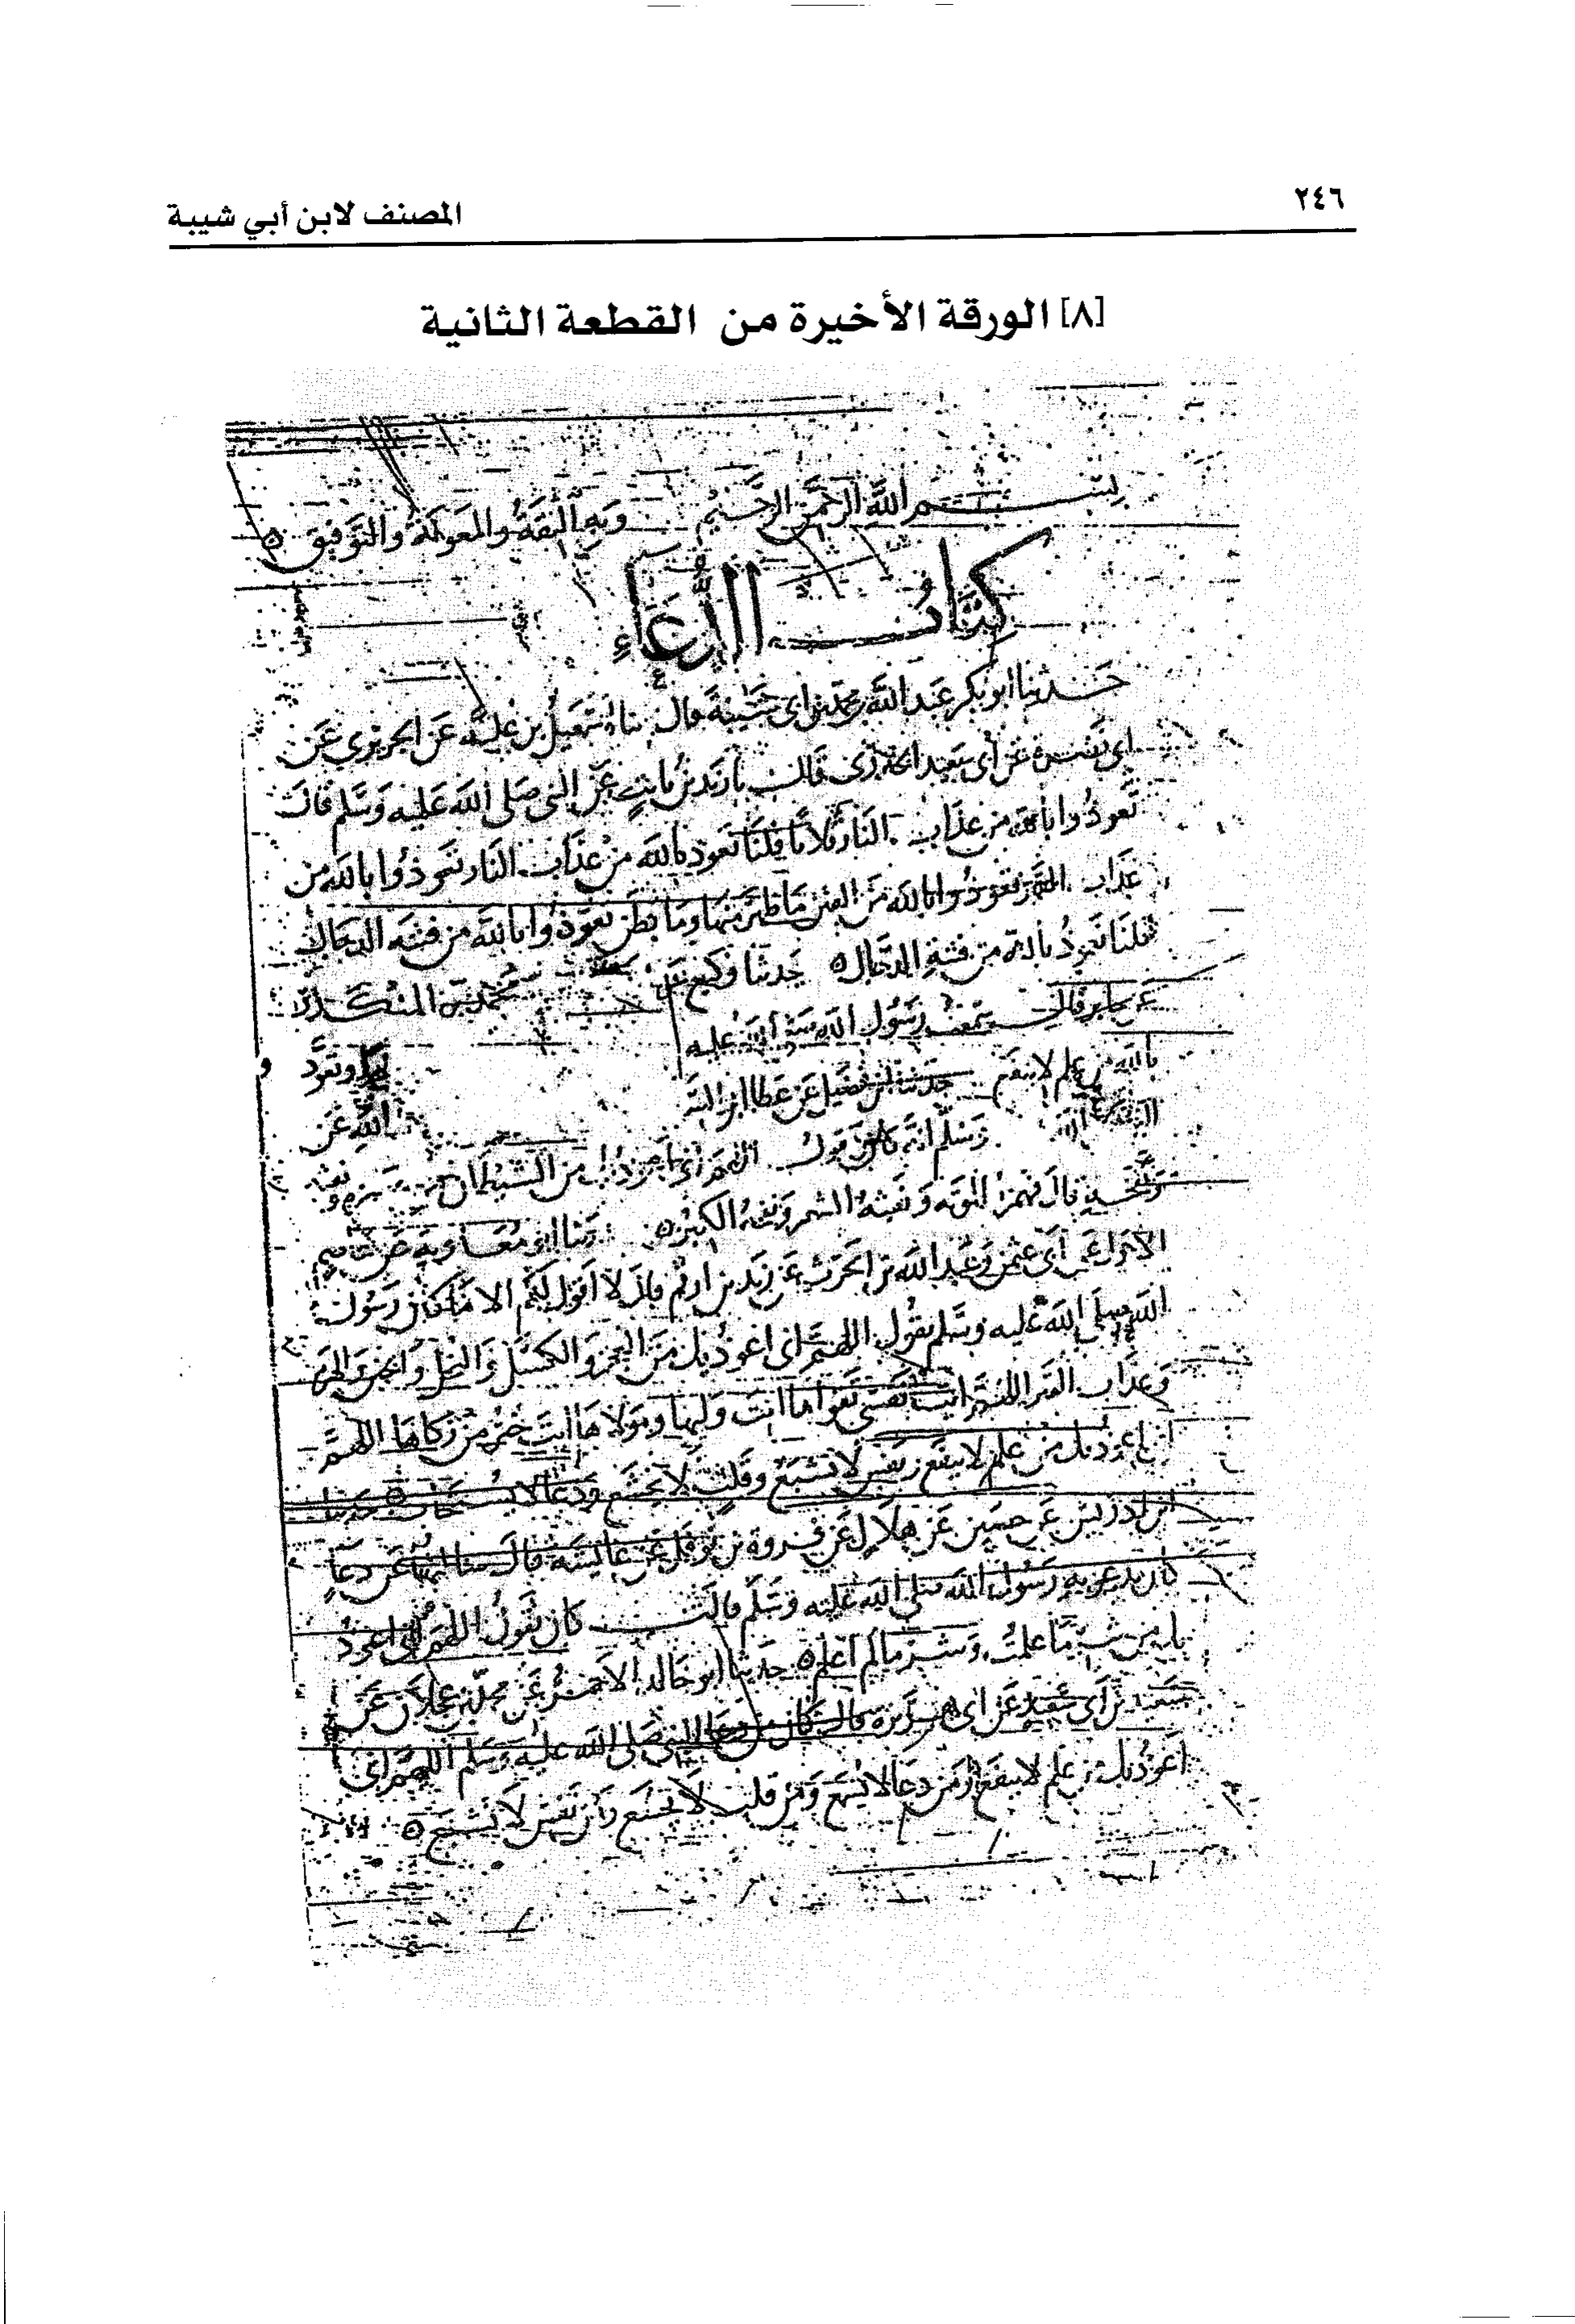 ٢٤٦
المصنف لابن أبي شيبة
[٨] الورقة الأخيرة من القطعة الثانية
بسم الله الرحمن الرحيم وبه الثقة والمعونة والتوفيق
كتاب الدعاء
حدثنا ابو بكر عبد الله بن محمد بن ابي شيبة قال ثنا اسمعيل بن علية عن الجريري عن
ابي نضرة عن ابي سعيد الخدري قال ثنا زيد بن ثابت عن النبي صلى الله عليه وسلم قال
تعوذوا بالله من عذاب النار ثلاثا قلنا نعوذ بالله من عذاب النار تعوذوا بالله من
عذاب القبر تعوذوا بالله من الفتن ما ظهر منها وما بطن تعوذوا بالله من فتنة الدجال
قلنا نعوذ بالله من فتنة الدجال حدثنا وكيع عن محمد بن المنكدر
عن جابر قال سمعت رسول الله صلى الله عليه وتعوذ
بالله من علم لا ينفع حدثنا ابن فضيل عن عطا ابن الله عن
وسلم انه كان يقول اللهم اني اعوذ بك من الشيطان من همزه ونفثه
ونفخه قال فهمزه الموتة ونفثه الشعر ونفخه الكبر ثنا ابو معاوية عن عاصم
الاحول عن ابي عثمن وعبد الله بن الحرث عن زيد بن ارقم قال لا اقول لكم الا ما كان رسول
الله صلى الله عليه وسلم يقول اللهم اني اعوذ بك من العجز والكسل والبخل والجبن والهرم
وعذاب القبر اللهم ات نفسي تقواها انت وليها ومولاها انت خير من زكاها اللهم
اني اعوذ بك من علم لا ينفع ونفس لا تشبع وقلب لا يخشع ودعا لا يستجاب حدثنا
ابن ادريس عن حصين عن هلال عن فروة بن نوفل عن عايشة قال سالتها عن دعا
كان يدعو به رسول الله صلى الله عليه وسلم قالت كان يقول اللهم اني اعوذ
بك من شر ما علمت وشر ما لم اعلم حدثنا ابو خالد الاحمر عن محمد بن عجلان عن
سعيد بن ابي سعيد عن ابي هريرة قال كان من دعا النبي صلى الله عليه وسلم اللهم اني
اعوذ بك من علم لا ينفع ومن دعا لا يسمع ومن قلب لا يخشع ومن نفس لا تشبع